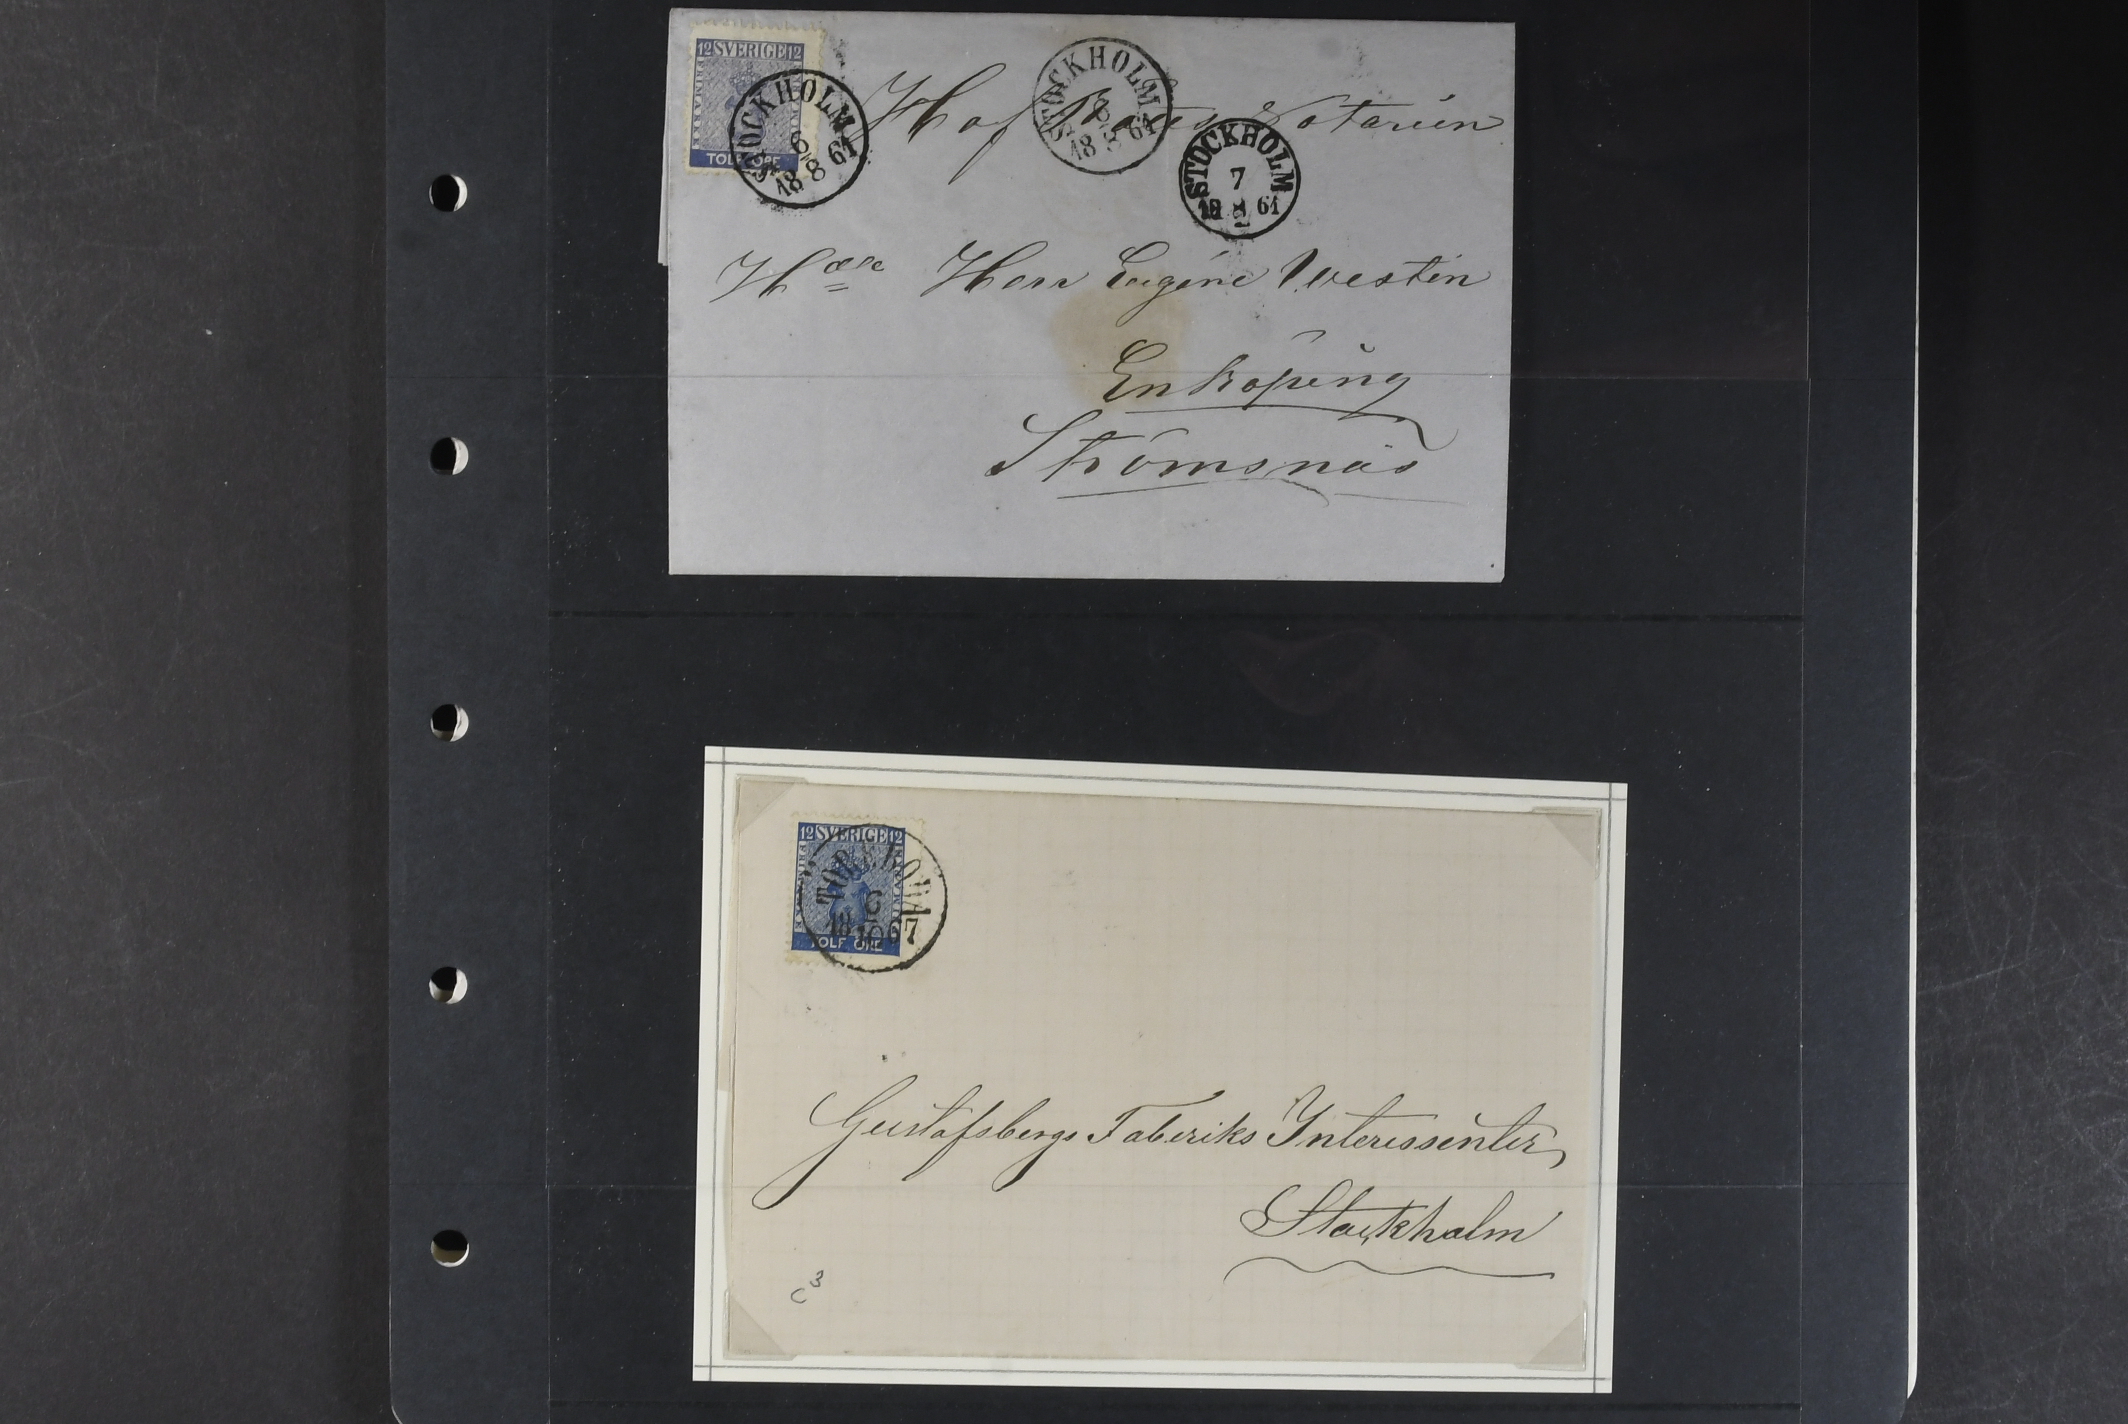 12 SVERIGE 12
FRIMÄRKE
TOLF ÖRE
STOCKHOLM
6
8
18 61
STOCKHOLM
6
8
18 61
STOCKHOLM
7
18 8 61
2
Hof Rätts Notarien
Herr Eugéne Westin
Enköping
Strömsnäs
12 SVERIGE 12
TOLF ÖRE
6
10
18 67
Gustafsbergs Fabriks Interessenter
Stockholm
C 3